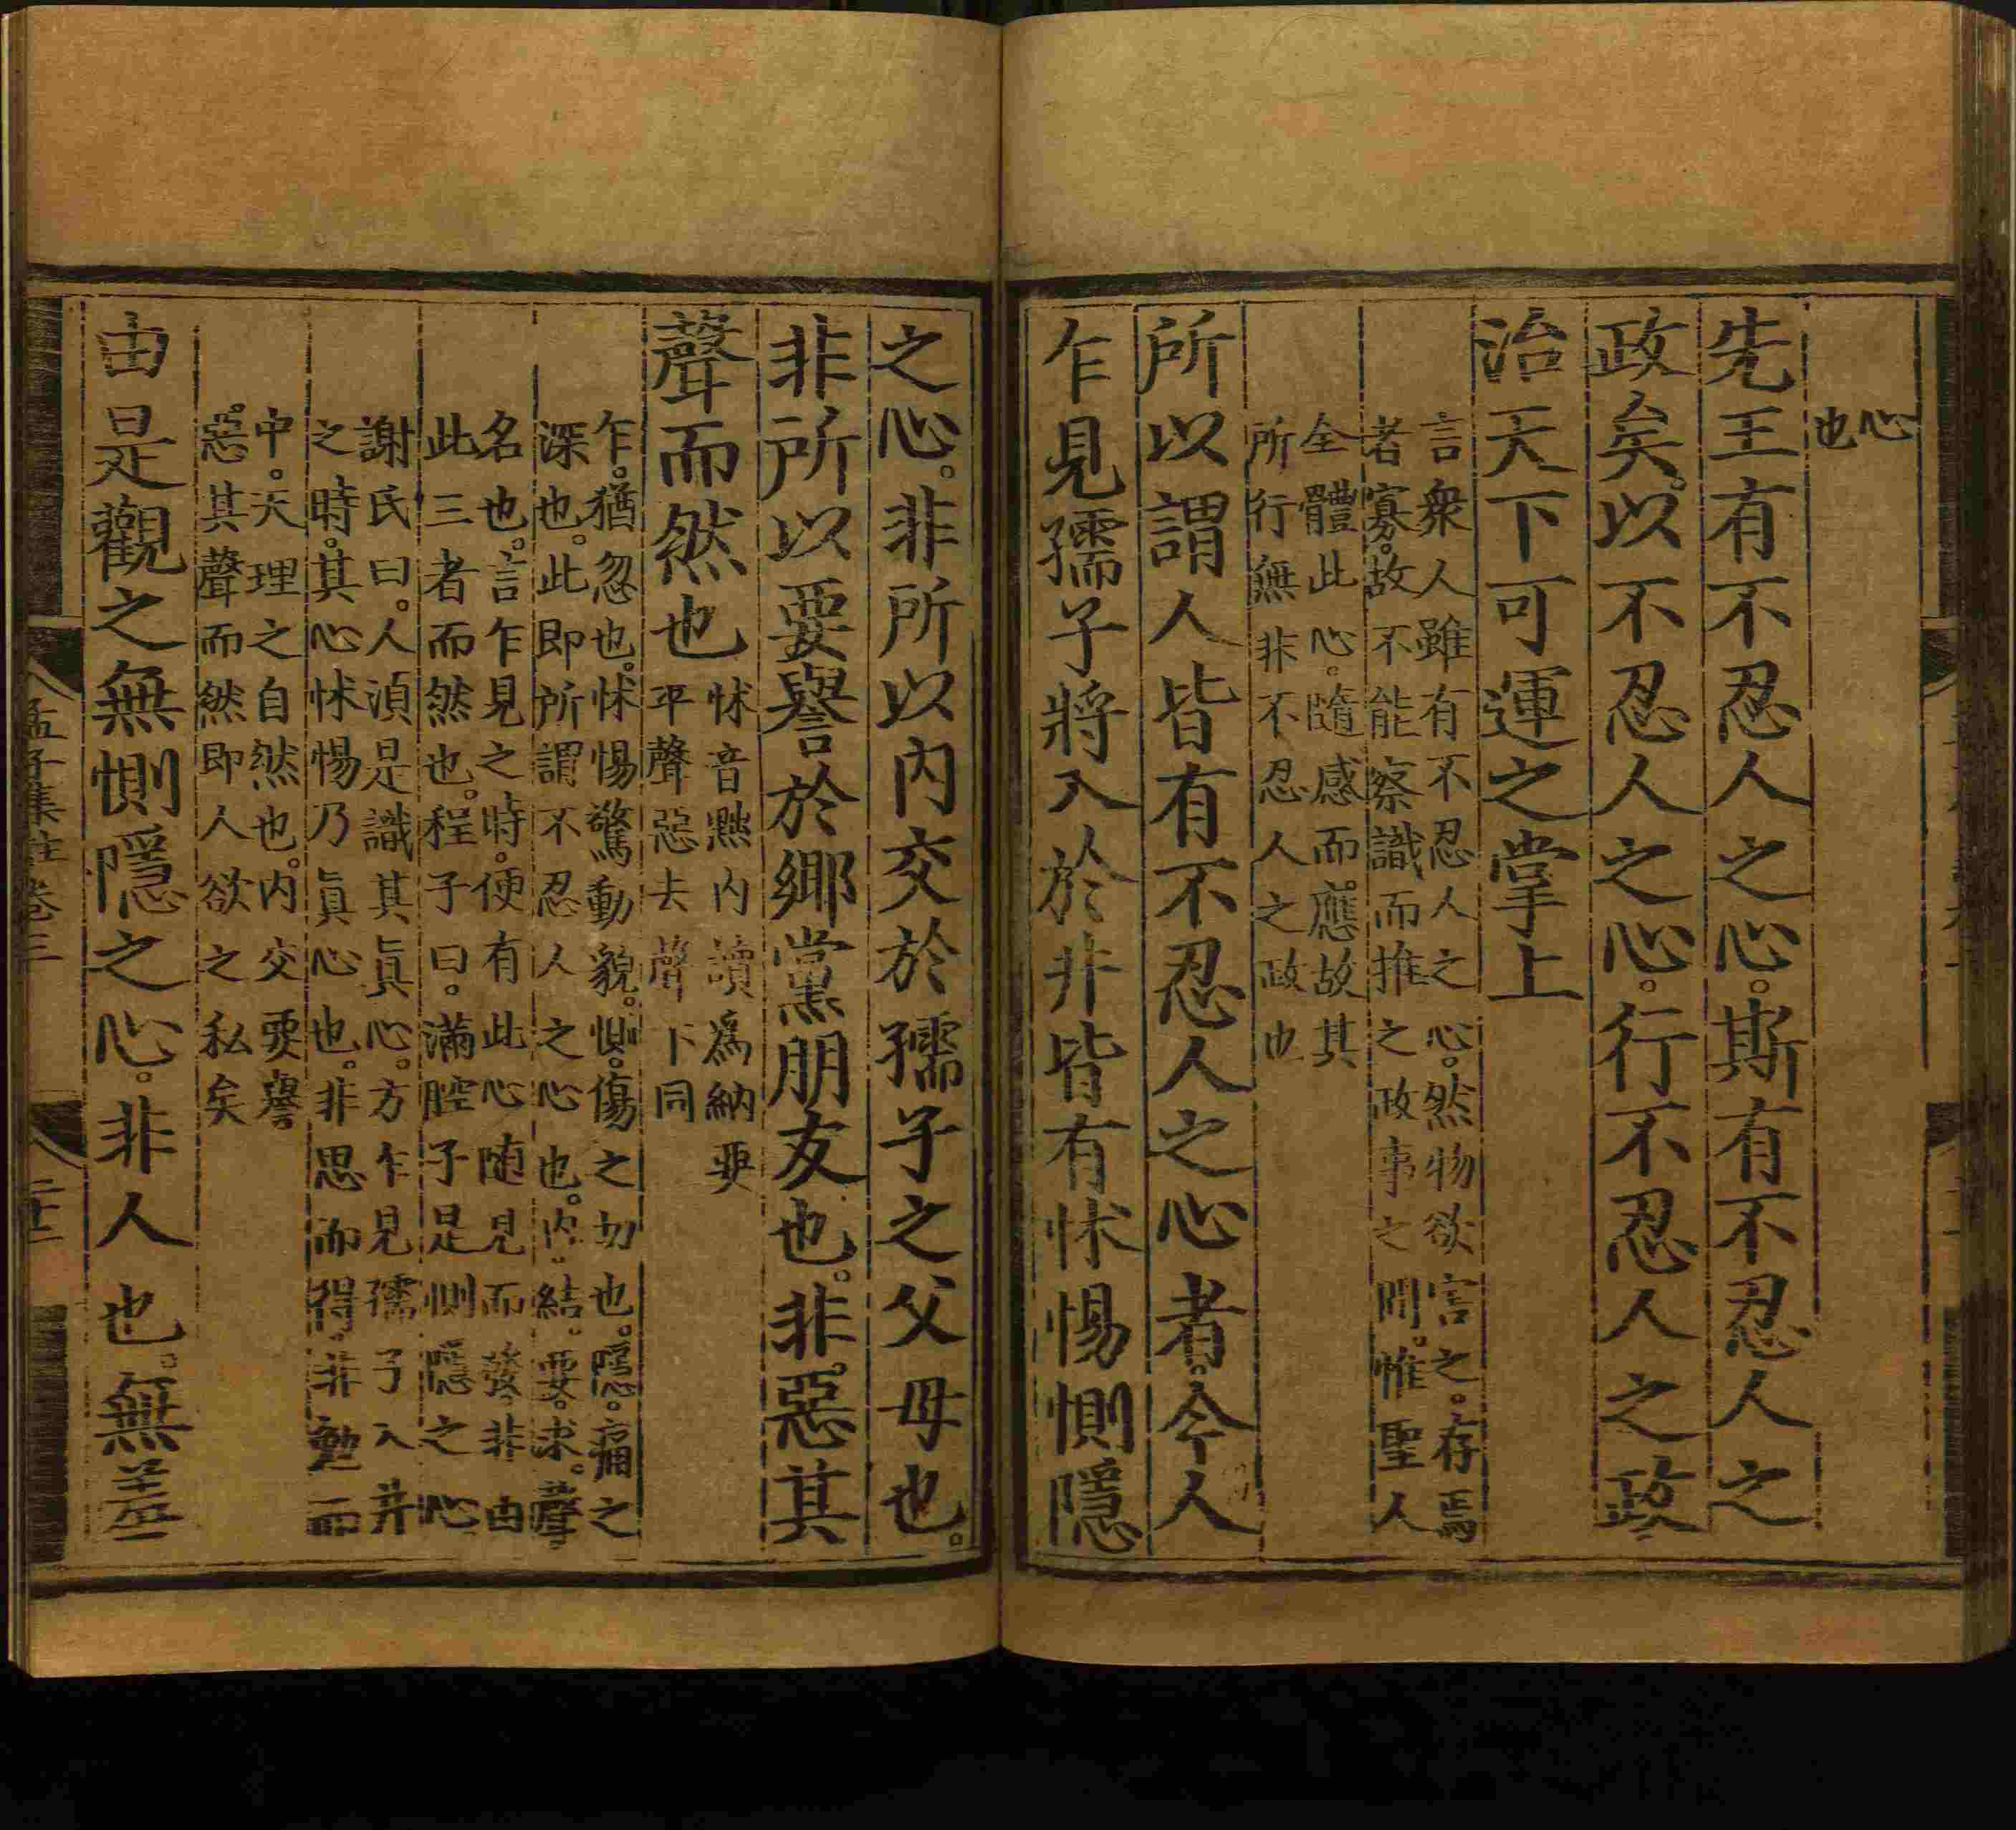 心
也
先王有不忍人之心。斯有不忍人之
政矣。以不忍人之心。行不忍人之政
治天下可運之掌上
言衆人雖有不忍人之心。然物欲害之。存焉
者寡。故不能察識而推之政事之間。惟聖人
全體此心。隨感而應。故其
所行無非不忍人之政也
所以謂人皆有不忍人之心者。今人
乍見孺子將入於井皆有怵惕惻隱
之心。非所以內交於孺子之父母也。
非所以要譽於鄉黨朋友也。非惡其
聲而然也
怵音黜內讀爲納要
平聲惡去聲下同
乍。猶忽也。怵惕驚動貌。惻。傷之切也。隱。痛之
深也。此即所謂不忍人之心也。內。結。要。求。聲
名也。言乍見之時。便有此心随見而發。非由
此三者而然也。程子曰。滿腔子是惻隱之心
謝氏曰。人湏是識其眞心。方乍見孺子入井
之時。其心怵惕乃眞心也。非思而得。非勉而
中。天理之自然也。內交要譽
惡其聲而然即人欲之私矣
由是觀之無惻隱之心。非人也。無羞
孟子集註卷三
二十二